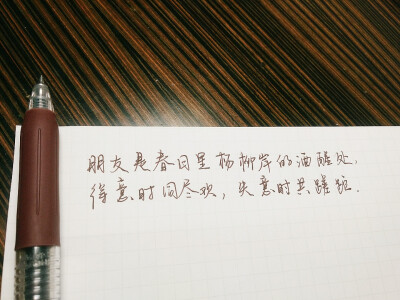 朋友是春日里杨柳岸的酒醒处，
得意时同尽欢，失意时共蹉跎．